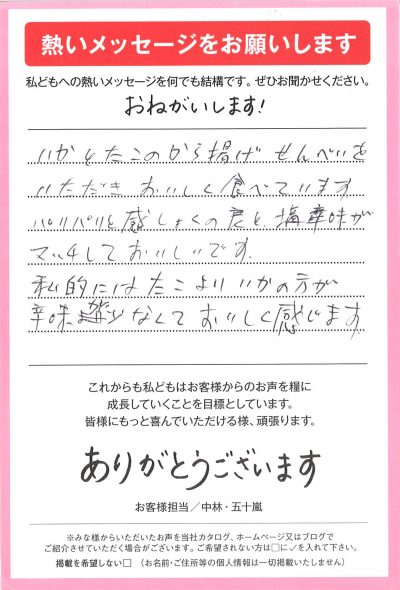 熱いメッセージをお願いします
私どもへの熱いメッセージを何でも結構です。ぜひお聞かせください。
おねがいします!
いかとたこのから揚げせんべいを
いただき おいしく食べています
パリパリと感しょくの良と、塩辛味が
マッチしておいしいです。
私的にはたこよりいかの方が
辛味が少なくておいしく感じます
これからも私どもはお客様からのお声を糧に
成長していくことを目標としています。
皆様にもっと喜んでいただける様、頑張ります。
ありがとうございます
お客様担当/中林・五十嵐
※みな様からいただいたお声を当社カタログ、ホームページ又はブログで
ご紹介させていただく場合がございます。ご希望されない方は□に✓を入れて下さい。
掲載を希望しない□ (お名前・ご住所等の個人情報は一切掲載いたしません)